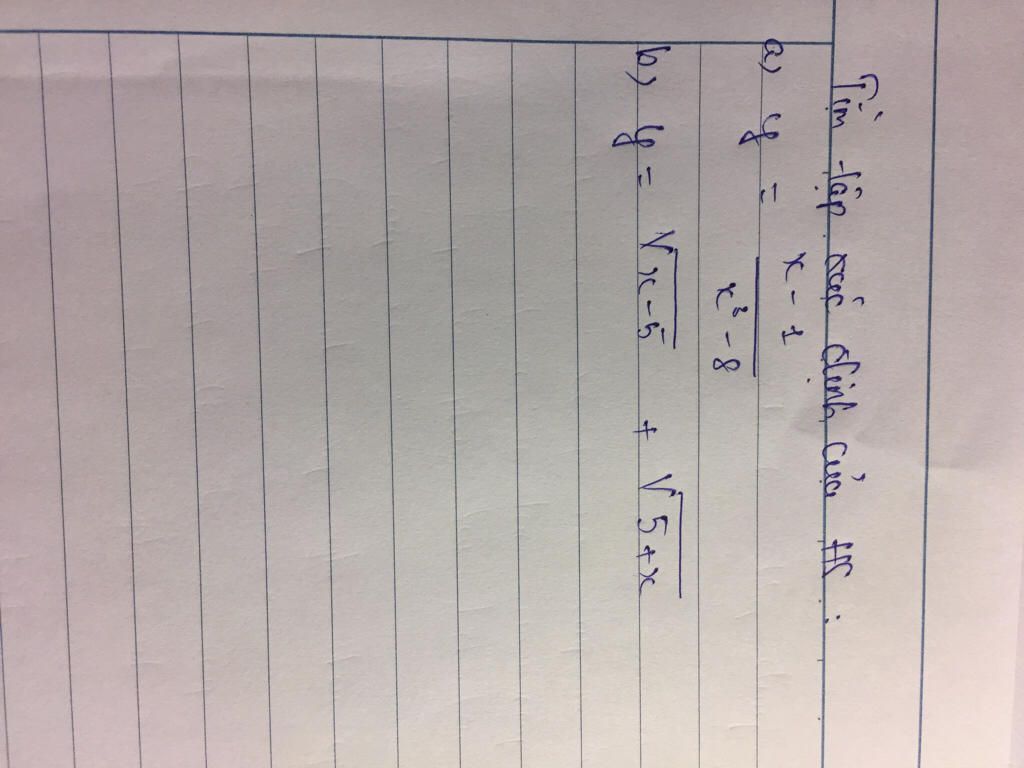 Tìm tập xác định của HS :
a) y = x - 1 / x³ - 8
b) y = √x - 5 + √5 + x